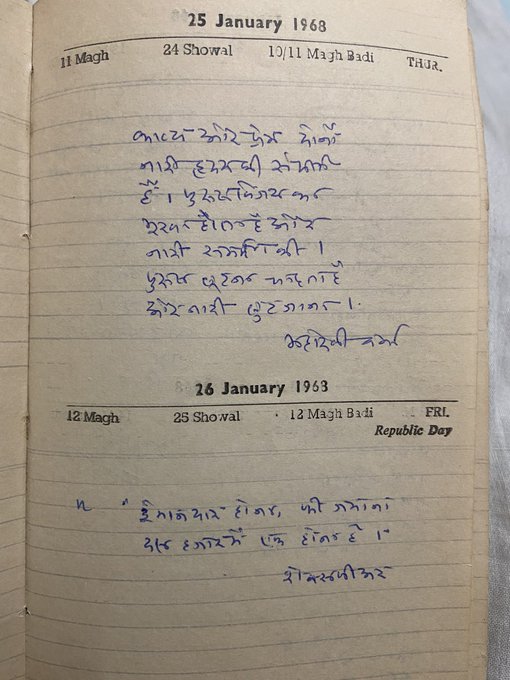 25 January 1968
11 Magh 24 Showal 10/11 Magh Badi THUR.
काव्य और प्रेम दोनों
नारी हृदय की संपत्ति
हैं। पुरुष विजय का
भूखा होता है और
नारी समर्पण की।
पुरुष लूटना चाहता है
और नारी लुट जाना।
महादेवी वर्मा
26 January 1968
12 Magh 25 Showal 12 Magh Badi FRI.
Republic Day
ईमानदार होना, की जमाना
दस हजार में एक होना है।
शेक्सपीअर